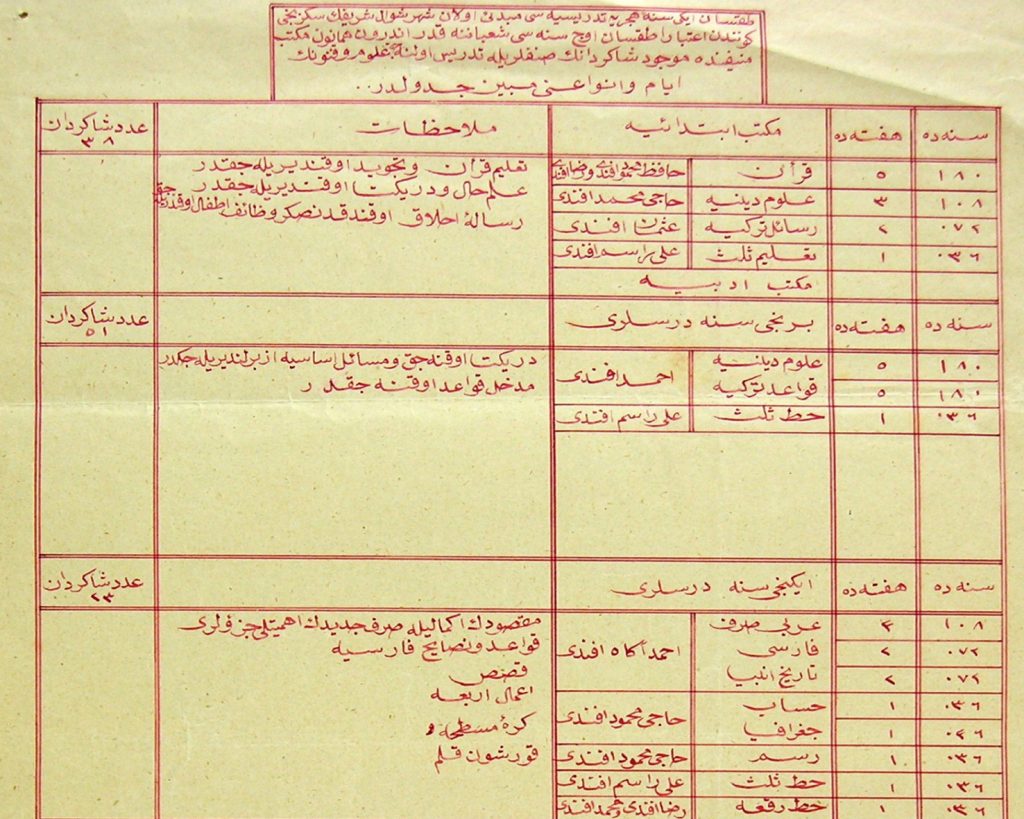 طقسان ایکی سنهٔ هجریه تدریسیه سی مبدئی اولان شهر شوال شریفك سکزنجی
کونندن اعتباراً طقسان اوچ سنه سی شعباننه قدر اندرون همایون مکتب
منیفنده موجود شاکردانك صنفلریله تدریس اولنه جق علوم و فنونك
ایام و انواعنی مبین جدولدر..
سنه ده هفته ده مکتب ابتدائیه ملاحظات عدد شاکردان ٣٨
١٨٠ ٥ قرآن حافظ محمود افندی و رضا افندی تعلیم قرآن و تجوید اوقندیریله جقدر
١٠٨ ٣ علوم دینیه حاجی محمد افندی علم حال و در یکتا اوقندیریله جقدر
٠٧٢ ٢ رسائل ترکیه عثمان افندی رسالهٔ اخلاق اوقندقدنصکره وظائف اطفال اوقندیریله جقدر
٠٣٦ ١ تعلیم ثلث علی راسم افندی
مکتب ادبیه
سنه ده هفته ده برنجی سنه درسلری عدد شاکردان ٥١
١٨٠ ٥ علوم دینیه احمد افندی در یکتا اوقنه جق و مسائل اساسیه ازبرلندیریله جکدر
١٨٠ ٥ قواعد ترکیه مدخل قواعد اوقنه جقدر
٠٣٦ ١ خط ثلث علی راسم افندی
سنه ده هفته ده ایکنجی سنه درسلری عدد شاکردان ٢٣
١٠٨ ٣ عربی صرف احمد آگاه افندی مقصودك اکمالیله صرف جدیدك اهمیتلی جزؤلری
٠٧٢ ٢ فارسی قواعد و نصایح فارسیه
٠٧٢ ٢ تاریخ انبیا قصص
٠٣٦ ١ حساب حاجی محمود افندی اعمال اربعه
٠٣٦ ١ جغرافیا کرهٔ مسطحه
٠٣٦ ١ رسم حاجی محمود افندی قورشون قلم
٠٣٦ ١ خط ثلث علی راسم افندی
٠٣٦ ١ خط رقعه رضا افندی و محمد افندی